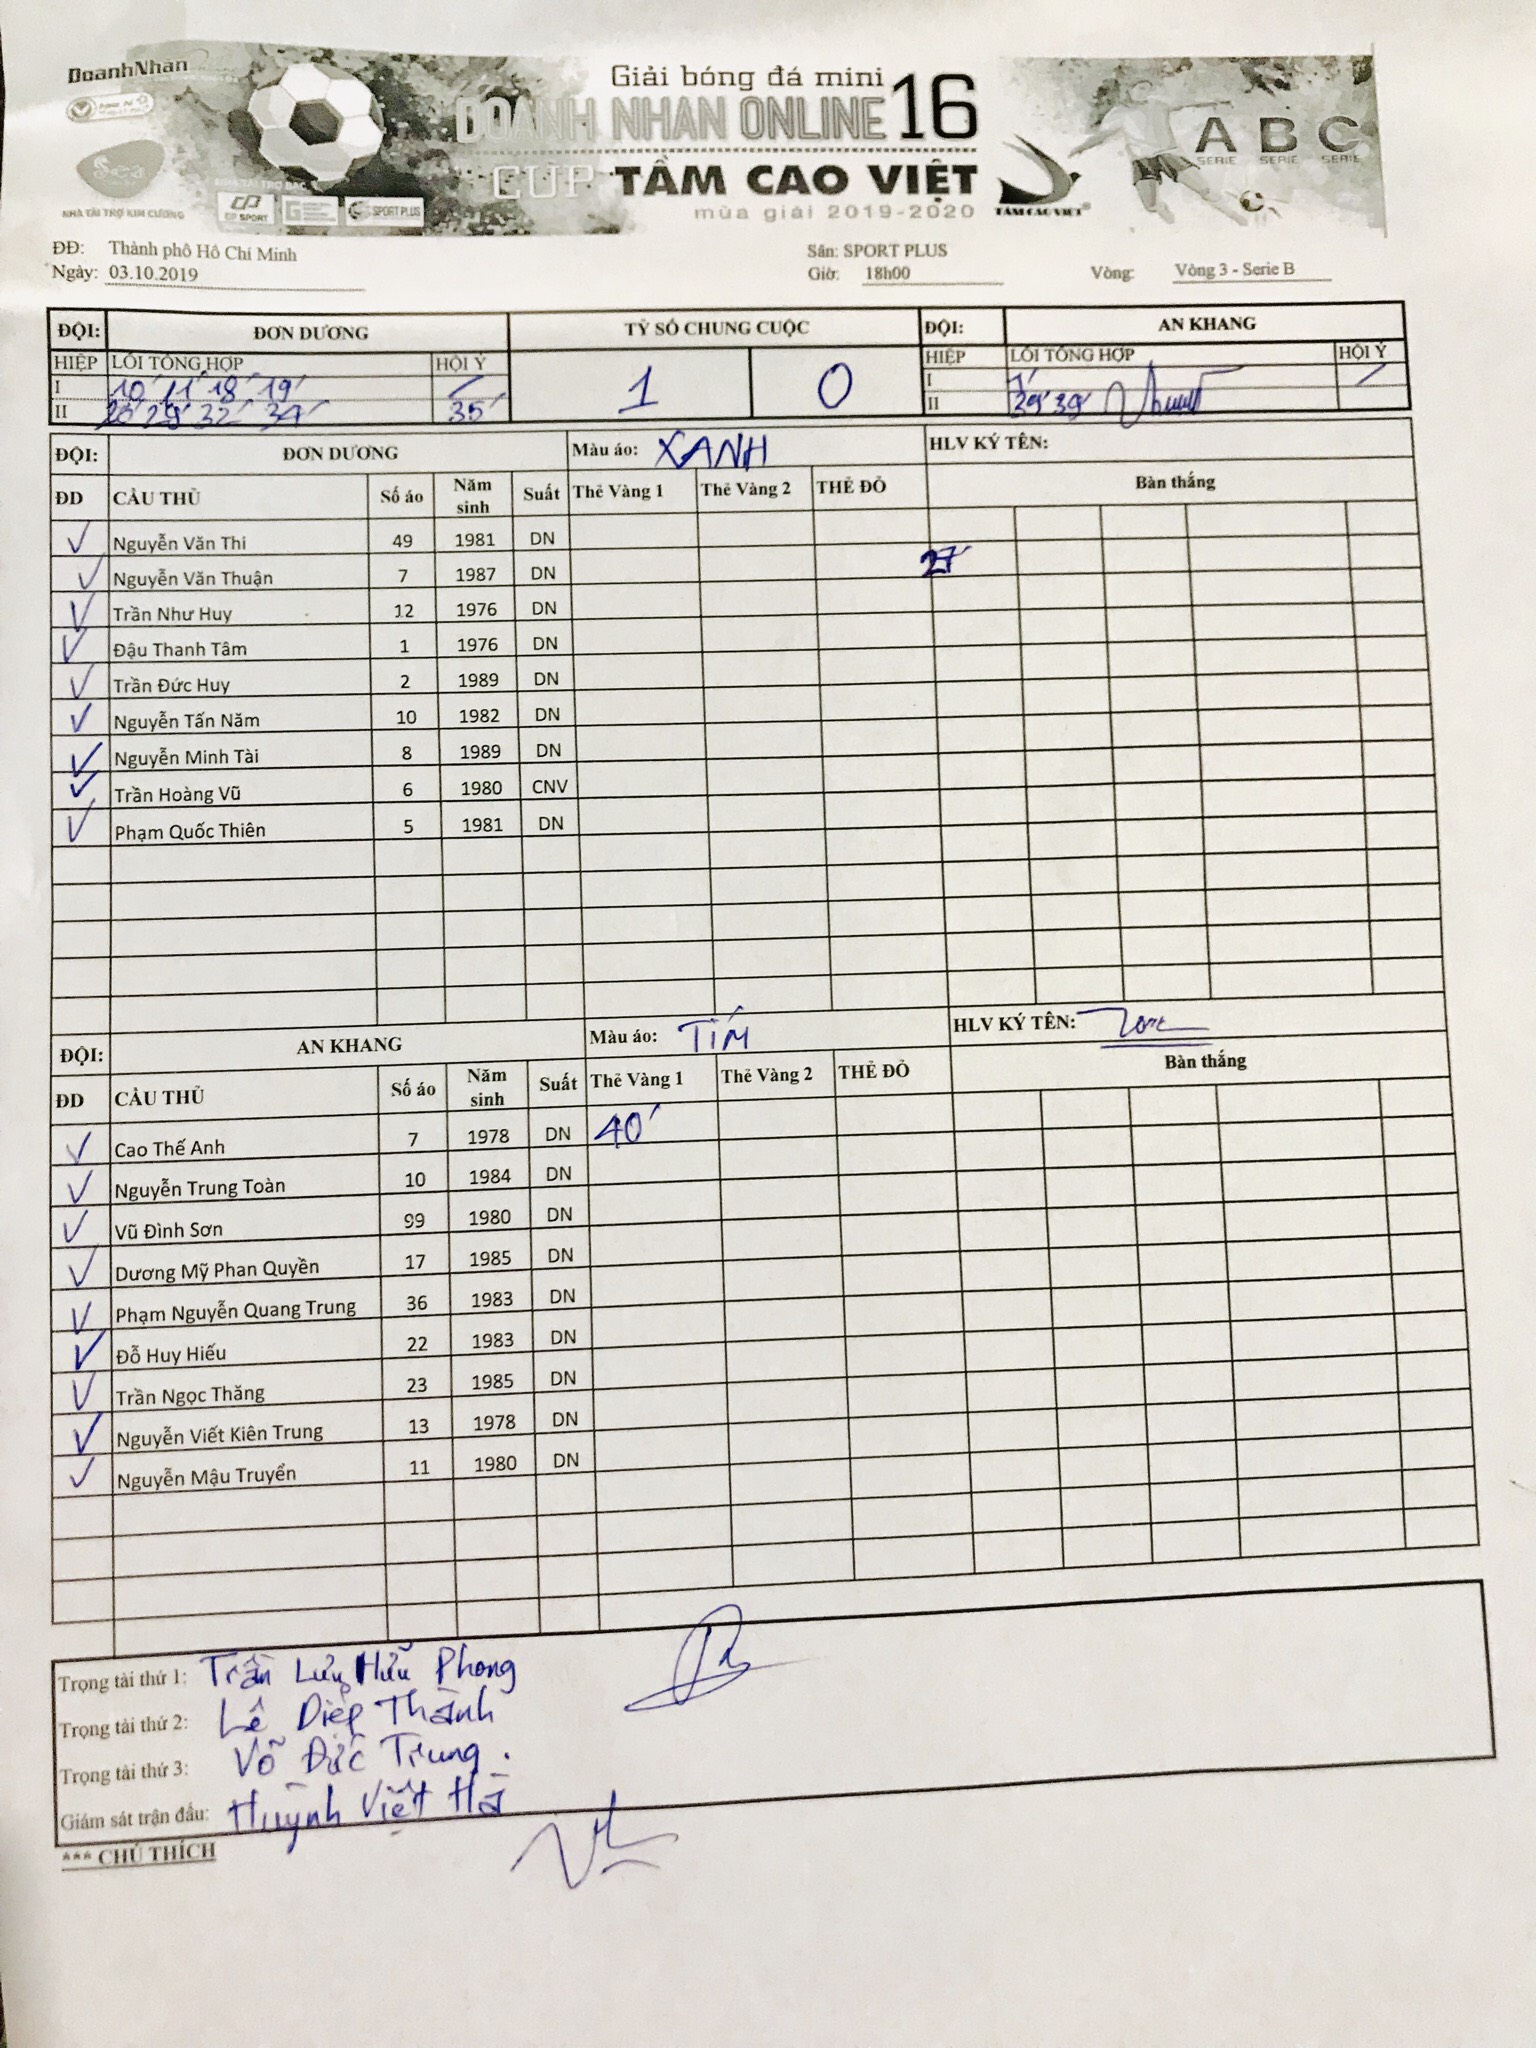 DoanhNhân
Giải bóng đá mini
DOANH NHÂN ONLINE 16
CÚP TẦM CAO VIỆT
mùa giải 2019-2020
Sea
NHÀ TÀI TRỢ KIM CƯƠNG
NHÀ TÀI TRỢ BẠC
CP SPORT
SPORT PLUS
TẦM CAO VIỆT
A B C
SERIE SERIE SERIE
ĐĐ: Thành phố Hồ Chí Minh Sân: SPORT PLUS
Ngày: 03.10.2019 Giờ: 18h00 Vòng: Vòng 3 - Serie B
ĐỘI: ĐƠN DƯƠNG TỶ SỐ CHUNG CUỘC ĐỘI: AN KHANG
HIỆP LỖI TỔNG HỢP HỘI Ý 1 0 HIỆP LỖI TỔNG HỢP HỘI Ý
I 10' 11' 18' 19' / I /
II 29' 32' 34' 35' II 39' 39'
ĐỘI: ĐƠN DƯƠNG Màu áo: XANH HLV KÝ TÊN:
ĐD CẦU THỦ Số áo Năm sinh Suất Thẻ Vàng 1 Thẻ Vàng 2 THẺ ĐỎ Bàn thắng
✓ Nguyễn Văn Thi 49 1981 DN
✓ Nguyễn Văn Thuận 7 1987 DN 27'
✓ Trần Như Huy 12 1976 DN
✓ Đậu Thanh Tâm 1 1976 DN
✓ Trần Đức Huy 2 1989 DN
✓ Nguyễn Tấn Năm 10 1982 DN
✓ Nguyễn Minh Tài 8 1989 DN
✓ Trần Hoàng Vũ 6 1980 CNV
✓ Phạm Quốc Thiên 5 1981 DN
ĐỘI: AN KHANG Màu áo: TÍM HLV KÝ TÊN:
ĐD CẦU THỦ Số áo Năm sinh Suất Thẻ Vàng 1 Thẻ Vàng 2 THẺ ĐỎ Bàn thắng
✓ Cao Thế Anh 7 1978 DN 40'
✓ Nguyễn Trung Toàn 10 1984 DN
✓ Vũ Đình Sơn 99 1980 DN
✓ Dương Mỹ Phan Quyền 17 1985 DN
✓ Phạm Nguyễn Quang Trung 36 1983 DN
✓ Đỗ Huy Hiếu 22 1983 DN
✓ Trần Ngọc Thăng 23 1985 DN
✓ Nguyễn Viết Kiên Trung 13 1978 DN
✓ Nguyễn Mậu Truyển 11 1980 DN
Trọng tài thứ 1: Trần Lưu Hữu Phong
Trọng tài thứ 2: Lê Diệp Thành
Trọng tài thứ 3: Võ Đức Trung.
Giám sát trận đấu: Huỳnh Việt Hà
*** CHÚ THÍCH